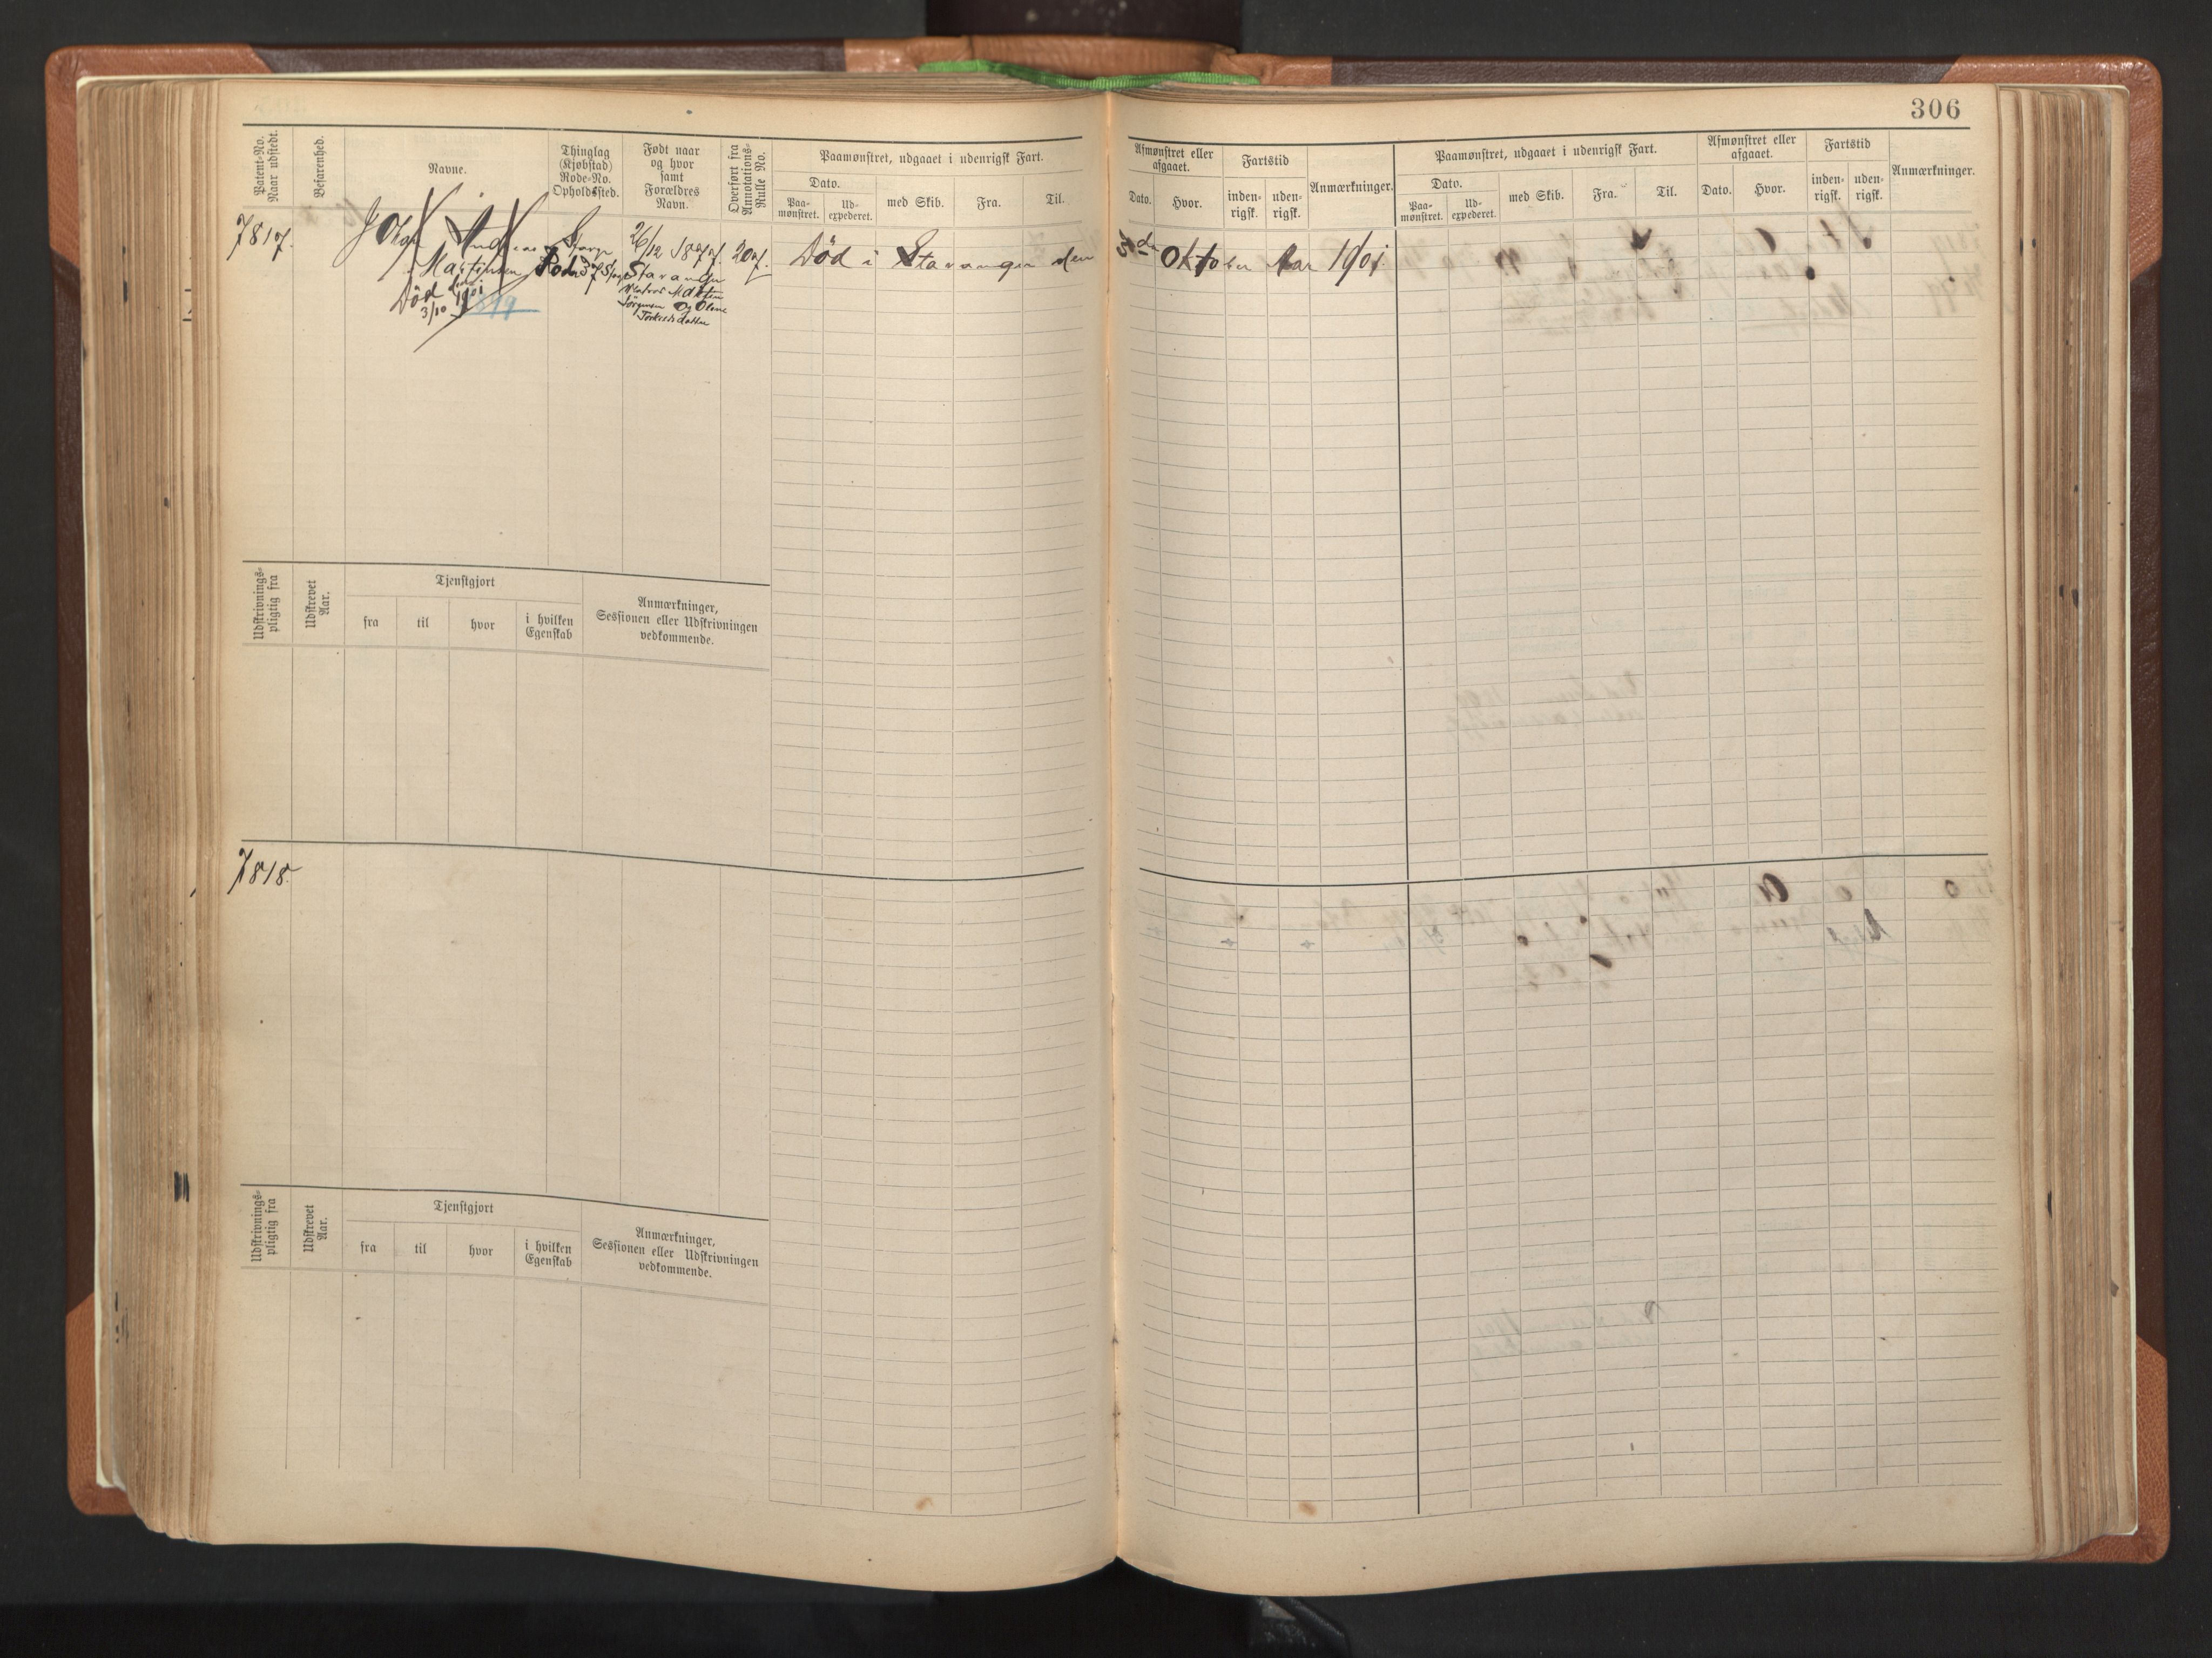 306
Patent-No.
Naar udstedt.
Befarenhed.
Navne.
Thinglag
(Kjøbstad)
Rode-No.
Opholdssted.
Født naar
og hvor
samt
Forældres
Navn.
Overført fra
Annotations-
Rulle No.
Paamønstret, udgaaet i udenrigsk Fart.
Dato.
Paa-
mønstret.
Ud-
expederet.
med Skib.
Fra.
Til.
Afmønstret eller
afgaaet.
Dato.
Hvor.
Fartstid
inden-
rigsk.
uden-
rigsk.
Anmærkninger.
Paamønstret, udgaaet i udenrigsk Fart.
Dato.
Paa-
mønstret.
Ud-
expederet.
med Skib.
Fra.
Til.
Afmønstret eller
afgaaet.
Dato.
Hvor.
Fartstid
inden-
rigsk.
uden-
rigsk.
Anmærkninger.
7817.
Andreas
Martinsen
Død
3/10 1901
Rode
26/12 1877.
Stavanger
Martin
Jørgensen Og Oline
Torkelsdatter
207.
Død i Stavanger den
Oktober Aar 1901
Udskrivnings-
pligtig fra
Udskrevet
Aar.
Tjenstgjort
fra
til
hvor
i hvilken
Egenskab
Anmærkninger,
Sessionen eller Udskrivningen
vedkommende.
7818.
Udskrivnings-
pligtig fra
Udskrevet
Aar.
Tjenstgjort
fra
til
hvor
i hvilken
Egenskab
Anmærkninger,
Sessionen eller Udskrivningen
vedkommende.